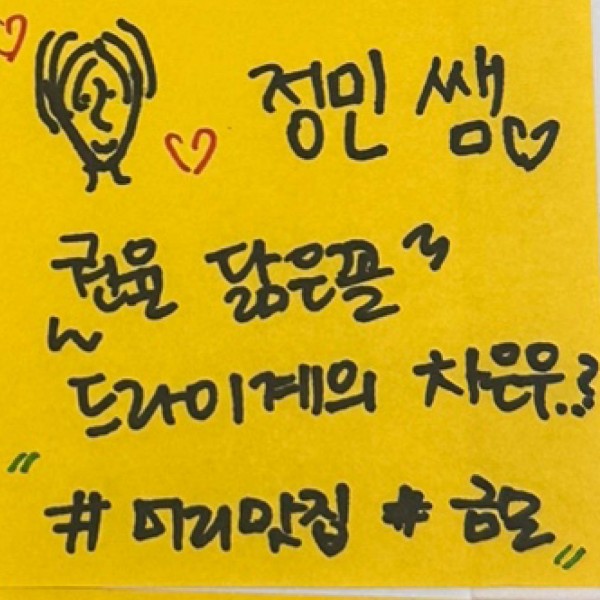 정민 쌤♡
권율 닮은꼴~
~드라이계의 차은우..?
"#머리맛집 #금모"